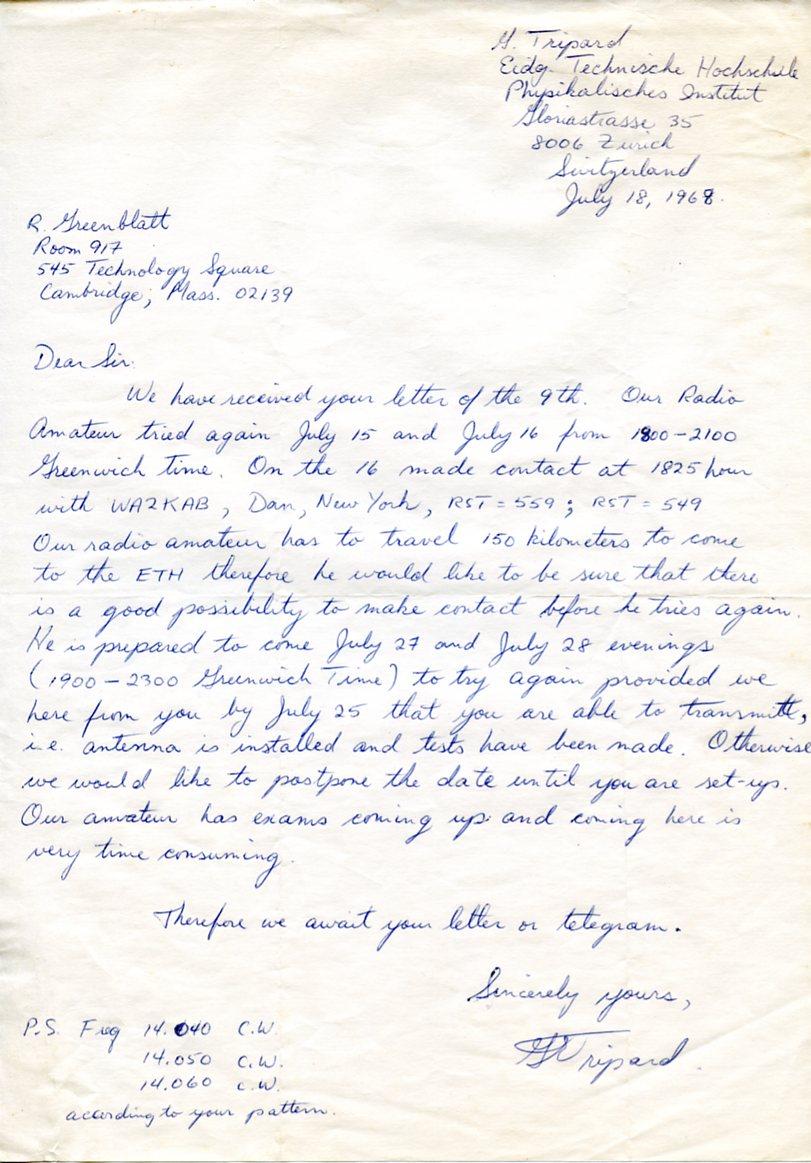 G. Tripard
Eidg. Technische Hochschule
Physikalisches Institut
Gloriastrasse 35
8006 Zurich
Switzerland
July 18, 1968.
R. Greenblatt
Room 917
545 Technology Square
Cambridge, Mass. 02139
Dear Sir:
We have received your letter of the 9th. Our Radio
Amateur tried again July 15 and July 16 from 1800-2100
Greenwich time. On the 16 made contact at 1825 hour
with WA2KAB, Dan, New York, RST = 559; RST = 549
Our radio amateur has to travel 150 kilometers to come
to the ETH therefore he would like to be sure that there
is a good possibility to make contact before he tries again.
He is prepared to come July 27 and July 28 evenings
(1900-2300 Greenwich Time) to try again provided we
here from you by July 25 that you are able to transmitt,
i.e. antenna is installed and tests have been made. Otherwise
we would like to postpone the date until you are set-up.
Our amateur has exams coming up and coming here is
very time consuming.
Therefore we await your letter or telegram.
Sincerely yours,
G Tripard.
P.S. Freq 14.040 C.W.
14.050 C.W.
14.060 C.W.
according to your pattern.